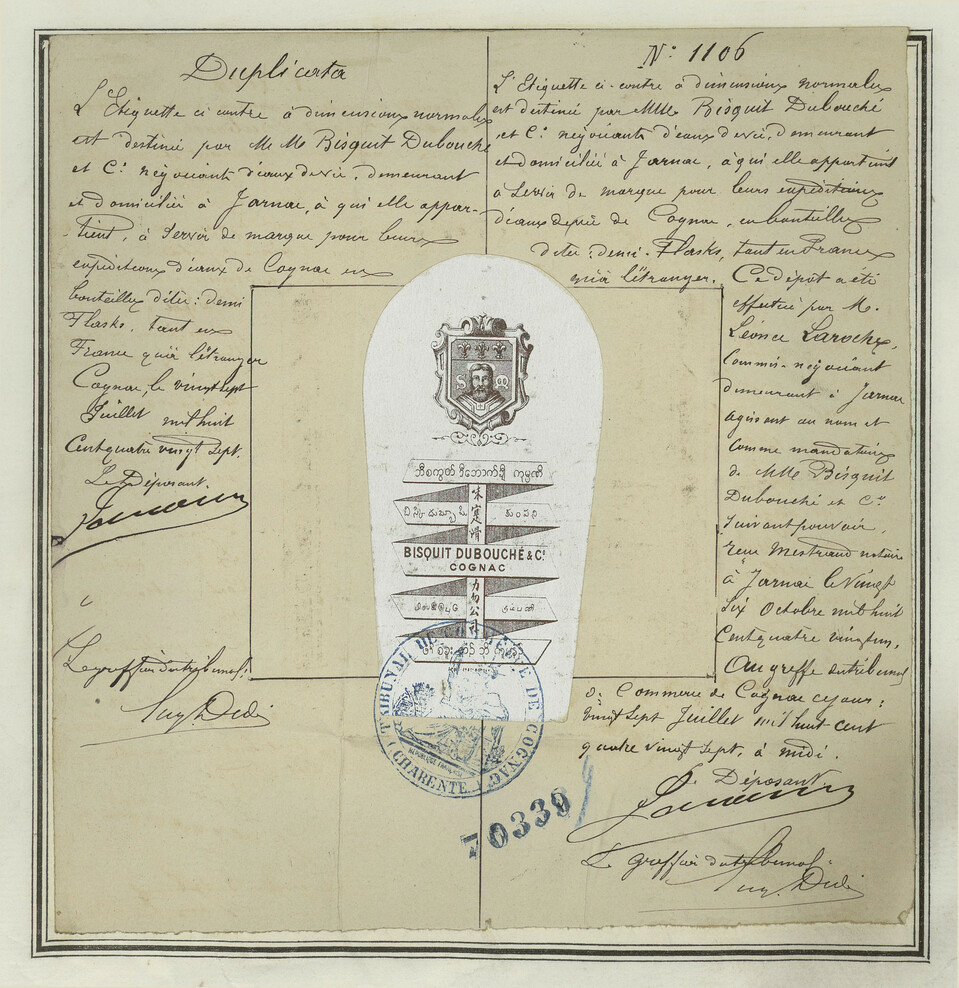 Duplicata
L'Etiquette ci contre à dimensions normales
est destinée par M M Bisquit Dubouché
et Cie négociants d'eaux de vie, demeurant
et domiciliée à Jarnac, à qui elle appar-
tient, à servir de marque pour leurs
expéditions d'eaux de Cognac en
bouteilles dites: demi
Flasks, tant en
France qu'à l'étranger
Cognac, le vingt sept
Juillet mil huit
Cent quatre vingt sept.
Le Déposant.
Le greffier du tribunal:
N° 1106
L'Etiquette ci-contre à dimensions normales
est destinée par MM Bisquit Dubouché
et Cie négociants d'eaux de vie, demeurant
et domiciliée à Jarnac, à qui elle appartient
à servir de marque pour leurs expéditions
d'eaux de vie de Cognac, en bouteilles
dites: demi-Flasks, tant en France
qu'à l'étranger. Ce dépôt a été
effectué par M.
Léonce Laroche,
Commis-négociant
demeurant à Jarnac
agissant au nom et
comme mandataire
de MM Bisquit
Dubouché et Cie
suivant pouvoir
reçu Mestreaud notaire
à Jarnac le vingt
six Octobre mil huit
Cent quatre vingt un,
Au greffe du tribunal
de Commerce de Cognac ce jour:
Vingt sept Juillet mil huit cent
quatre vingt sept, à midi.
Le Déposant.
Le greffier du tribunal.
S CO
ဘီစကွတ် ဒီဘောက်ချီ ကုမ္ပဏီ
BISQUIT DUBOUCHÉ & Cie
COGNAC
公司
TRIBUNAL DE COMMERCE DE COGNAC
RÉPUBLIQUE FRANÇAISE
(CHARENTE)
70339